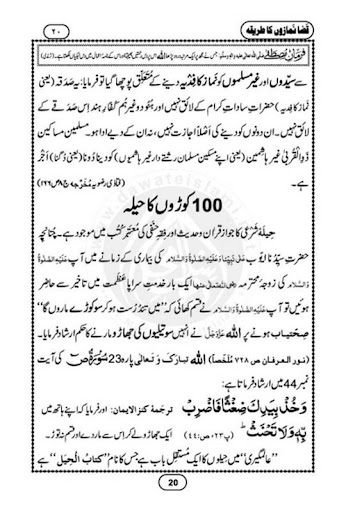 قضا نمازوں کا طریقہ
۲۰
سے سیّدوں اور غیر مسلموں کو نماز کا فدیہ دینے کے متعلّق پوچھا گیا تو فرمایا: یہ صدقہ (یعنی
نماز کا فدیہ) حضراتِ ساداتِ کرام کے لائق نہیں اور ہنود وغیرہم کفّارِ ہند اس صدقے کے
لائق نہیں۔ ان دونوں کو دینے کی اصلاً اجازت نہیں، نہ ان کے دیے ادا ہو۔ مسلمین مساکین
ذوالقربیٰ غیر ہاشمین (یعنی اپنے مسکین مسلمان رشتے دار غیر ہاشمیوں) کو دینا دونا (یعنی دگنا) اجر
ہے۔
100 کوڑوں کا حیلہ
حیلۂ شرعی کا جواز قرآن و حدیث اور فقہِ حنفی کی معتبر کتب میں موجود ہے۔ چنانچہ
حضرتِ سیّدنا ایّوب عَلٰی نَبِیِّنَا وَعَلَیْہِ الصَّلٰوۃُ وَالسَّلَام کی بیماری کے زمانے میں آپ عَلَیْہِ الصَّلٰوۃُ
وَالسَّلَام کی زوجۂ محترمہ رضی اللہ تعالٰی عنہا ایک بار خدمتِ سراپا عظمت میں تاخیر سے حاضر
ہوئیں تو آپ عَلَیْہِ الصَّلٰوۃُ وَالسَّلَام نے قسم کھائی کہ ”میں تندرست ہو کر سو کوڑے ماروں گا“
صحتیاب ہونے پر اللہ عَزَّوَجَلَّ نے انہیں سو تیلیوں کی جھاڑو مارنے کا حکم ارشاد فرمایا۔
(نور العرفان ص ۷۲۸ ملخصاً) اللہ تبارَکَ وَ تعالٰی پارہ 23 سُوْرَۃُ صٓ کی آیت
نمبر 44 میں ارشاد فرماتا ہے:
وَخُذْ بِيَدِكَ ضِغْثًا فَاضْرِبْ ترجمۂ کنز الایمان: اور فرمایا کہ اپنے ہاتھ میں
بِّهٖ وَلَا تَحْنَثْ (پ۲۳، ص:۴۴) ایک جھاڑو لے کر اس سے مار دے اور قسم نہ توڑ۔
”عالمگیری“ میں حیلوں کا ایک مستقل باب ہے جس کا نام ”کتابُ الحِیَل“ ہے
20